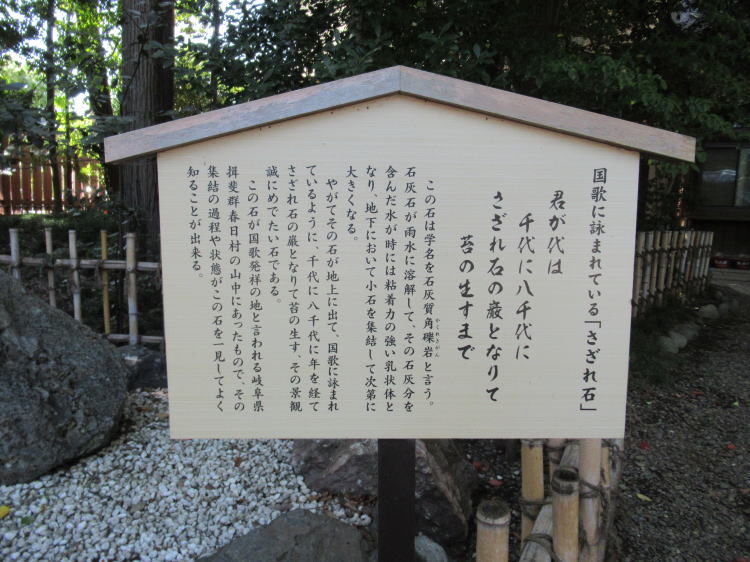 国歌に詠まれている「さざれ石」
君が代は
千代に八千代に
さざれ石の巌となりて
苔の生すまで
この石は学名を石灰質角礫岩と言う。
かくれきがん
石灰石が雨水に溶解して、その石灰分を
含んだ水が時には粘着力の強い乳状体と
なり、地下において小石を集結して次第に
大きくなる。
やがてその石が地上に出て、国歌に詠まれ
ているように、千代に八千代に年を経て
さざれ石の巌となりて苔の生す、その景観
誠にめでたい石である。
この石が国歌発祥の地と言われる岐阜県
揖斐群春日村の山中にあったもので、その
集結の過程や状態がこの石を一見してよく
知ることが出来る。